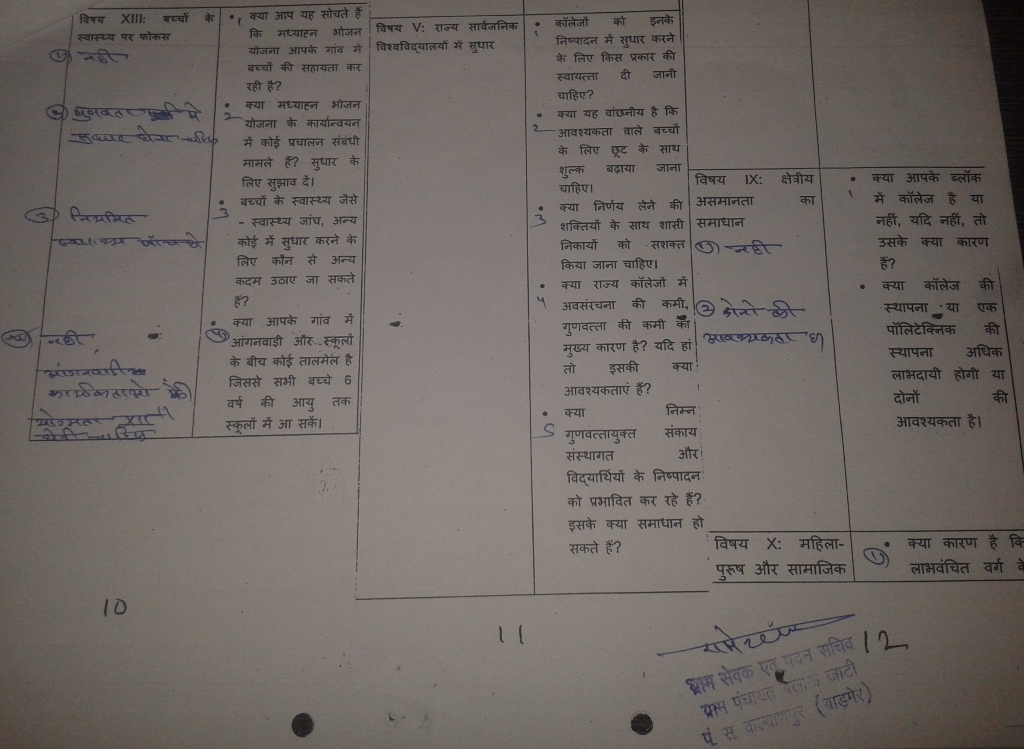 विषय XIII: बच्चों के
स्वास्थ्य पर फोकस
① नही
② गुणवता में
सुधार होना चाहिए
③ नियमित
स्वास्थ्य जाँच हो
④ नही
आंगनवाडी
कार्यकर्ताओ की
योग्यता XII
होनी चाहिए
• क्या आप यह सोचते हैं
1
कि मध्याहन भोजन
योजना आपके गांव में
बच्चों की सहायता कर
रही है?
• क्या मध्याहन भोजन
2
योजना के कार्यान्वयन
में कोई प्रचालन संबंधी
मामले हैं? सुधार के
लिए सुझाव दें।
• बच्चों के स्वास्थ्य जैसे
3
- स्वास्थ्य जांच, अन्य
कोई में सुधार करने के
लिए कौन से अन्य
कदम उठाए जा सकते
हैं?
• क्या आपके गांव में
④ आंगनवाडी और स्कूलों
के बीच कोई तालमेल है
जिससे सभी बच्चे 6
वर्ष की आयु तक
स्कूलों में आ सकें।
10
विषय V: राज्य सार्वजनिक
विश्वविद्यालयों में सुधार
• कॉलेजों को इनके
1
निष्पादन में सुधार करने
के लिए किस प्रकार की
स्वायत्ता दी जानी
चाहिए?
• क्या यह वांछनीय है कि
2
आवश्यकता वाले बच्चों
के लिए छूट के साथ
शुल्क बढ़ाया जाना
चाहिए।
• क्या निर्णय लेने की
3
शक्तियों के साथ शासी
निकायों को सशक्त
किया जाना चाहिए।
• क्या राज्य कॉलेजों में
4
अवसंरचना की कमी,
गुणवत्ता की कमी का
मुख्य कारण है? यदि हां
तो इसकी क्या
आवश्यकताएं हैं?
• क्या निम्न
5
गुणवत्तायुक्त संकाय
संस्थागत और
विद्यार्थियों के निष्पादन
को प्रभावित कर रहे हैं?
इसके क्या समाधान हो
सकते हैं?
11
विषय IX: क्षेत्रीय
असमानता का
समाधान
① नही
② दोनो की
आवश्यकता है
• क्या आपके ब्लॉक
1
में कॉलेज है या
नहीं, यदि नहीं, तो
उसके क्या कारण
हैं?
• क्या कॉलेज की
स्थापना या एक
पॉलिटेक्निक की
स्थापना अधिक
लाभदायी होगी या
दोनों की
आवश्यकता है।
विषय X: महिला-
पुरूष और सामाजिक
① • क्या कारण है कि
लाभवंचित वर्ग के
12
ग्राम सेवक एवं पदेन सचिव
ग्राम पंचायत जाटी
पं. स. कल्याणपुर (बाड़मेर)